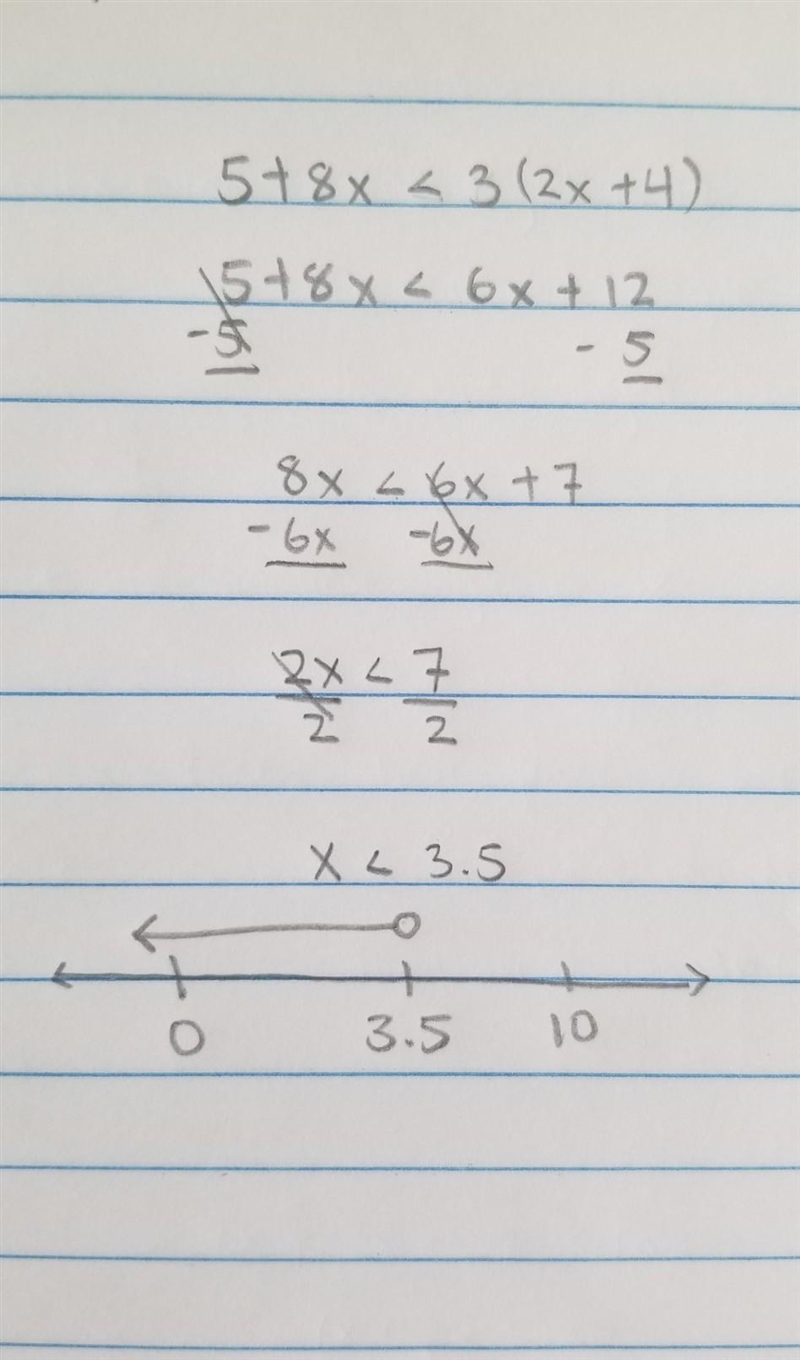 5+8x < 3(2x+4)
5+8x < 6x+12
-5 - 5
8x < 6x+7
-6x -6x
2x < 7
2 2
x < 3.5
0 3.5 10